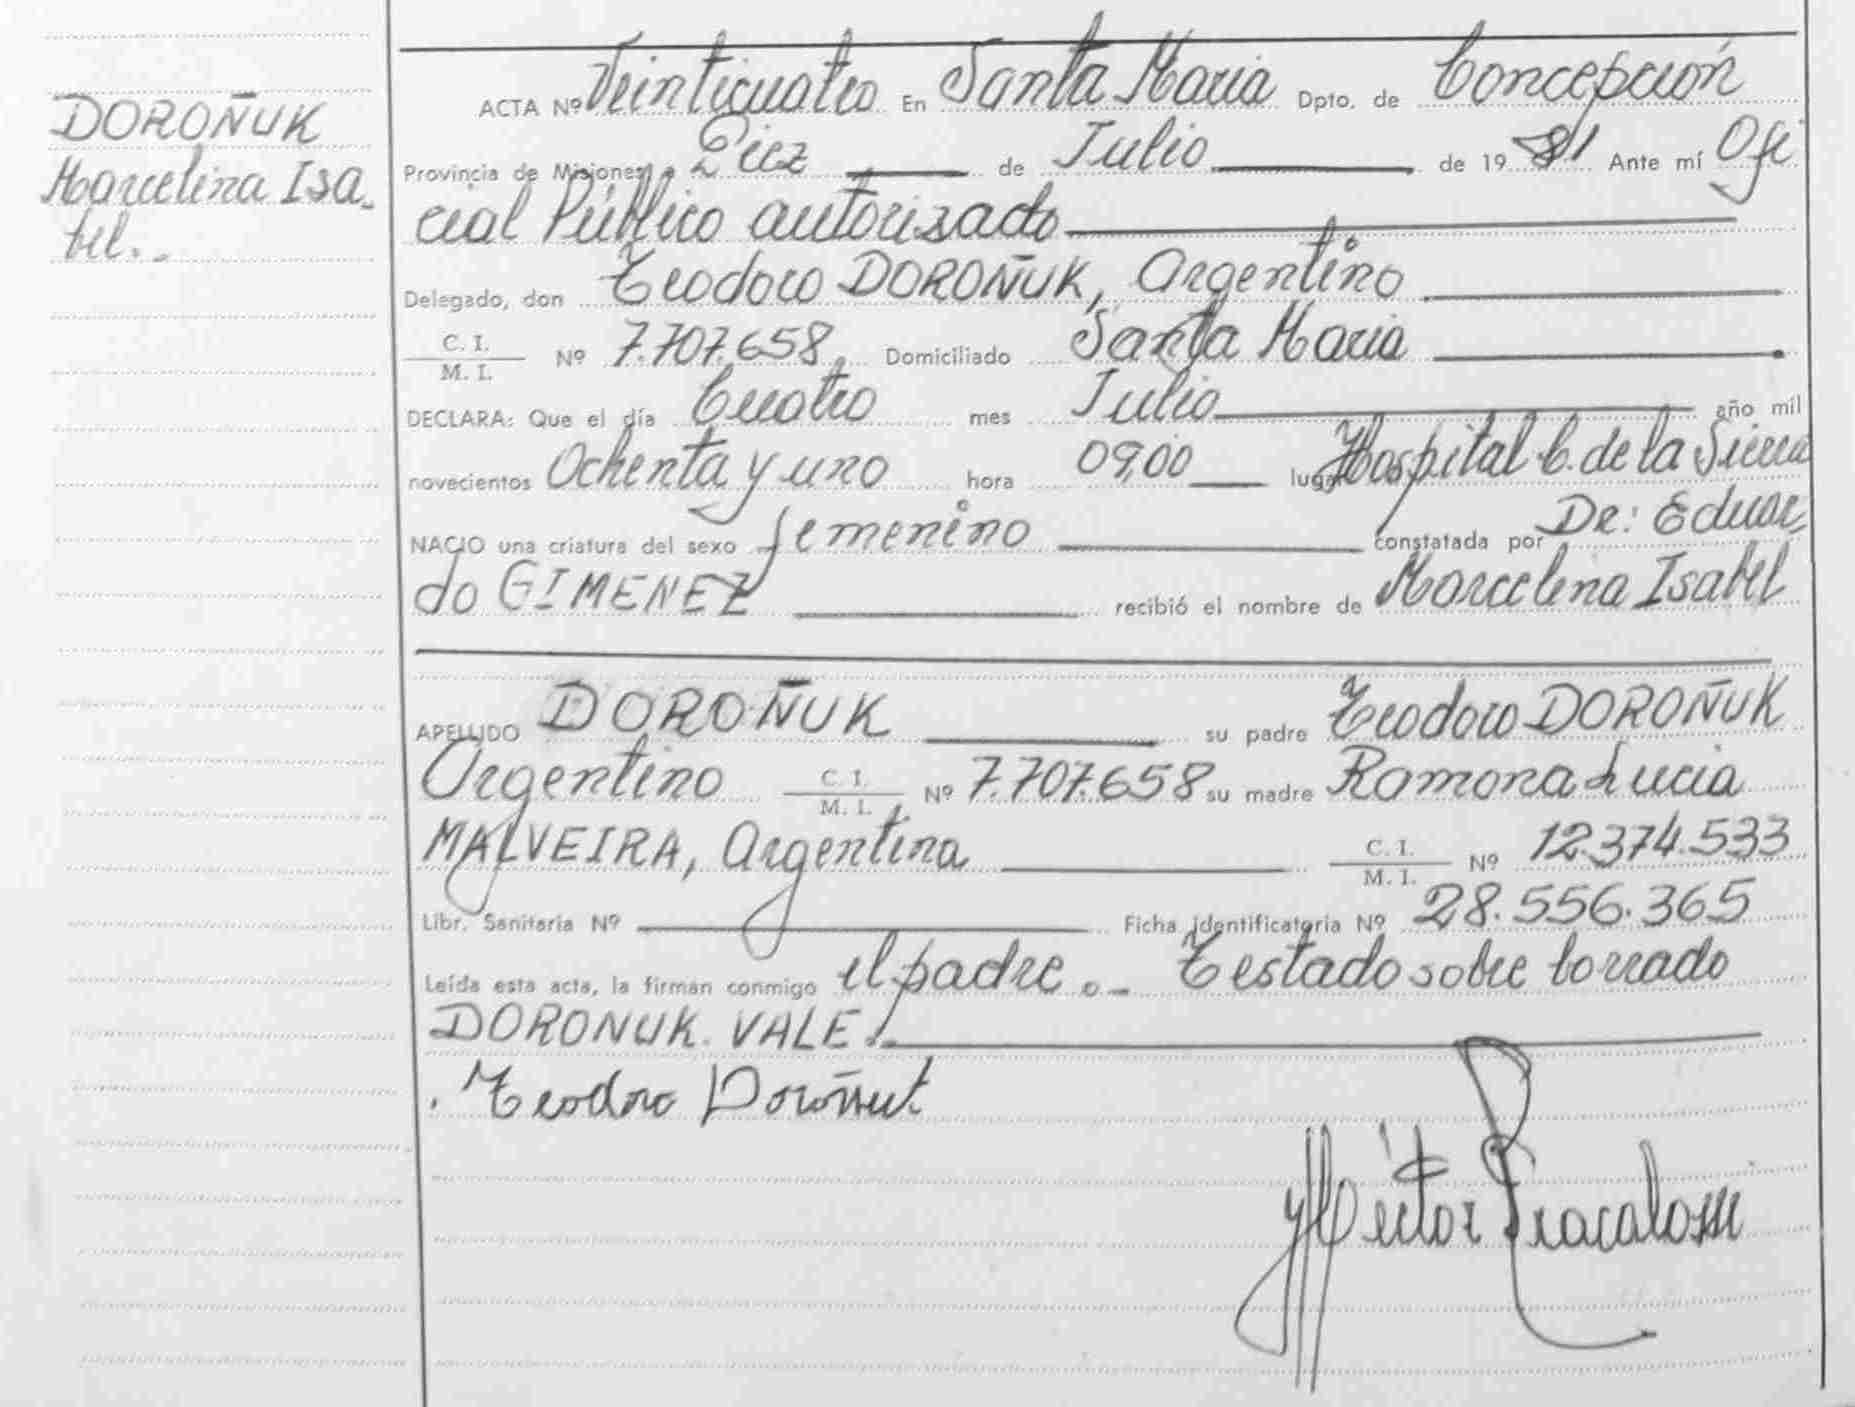 DOROÑUK
Marcelina Isa-
bel.-
ACTA Nº Veinticuatro En Santa Maria Dpto. de Concepción
Provincia de Misiones, a Diez de Julio de 1981 Ante mí Ofi
cial Público autorizado
Delegado, don Teodoro DOROÑUK, Argentino
C. I. / M. I. Nº 7.707.658, Domiciliado Santa Maria
DECLARA: Que el día Cuatro mes Julio año mil
novecientos Ochenta y uno hora 09,00 lugar Hospital C. de la Sierra
NACIO una criatura del sexo femenino constatada por Dr: Eduar
do GIMENEZ recibió el nombre de Marcelina Isabel
APELLIDO DOROÑUK su padre Teodoro DOROÑUK
Argentino C. I. / M. I. Nº 7.707.658 su madre Ramona Lucia
MALVEIRA, Argentina C. I. / M. I. Nº 12.374.533
Libr. Sanitaria Nº Ficha identificatoria Nº 28.556.365
Leída esta acta, la firman conmigo el padre.- Testado sobre borrado
DORONUK. VALE.-
Teodoro Doroñuk
Héctor